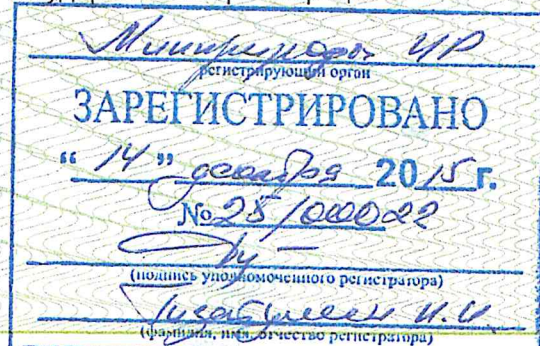 Минприроды ЧР
регистрирующий орган
ЗАРЕГИСТРИРОВАНО
" 14 " декабря 2015 г.
№ 25/00022
(подпись уполномоченного регистратора)
И.И.
(фамилия, имя, отчество регистратора)